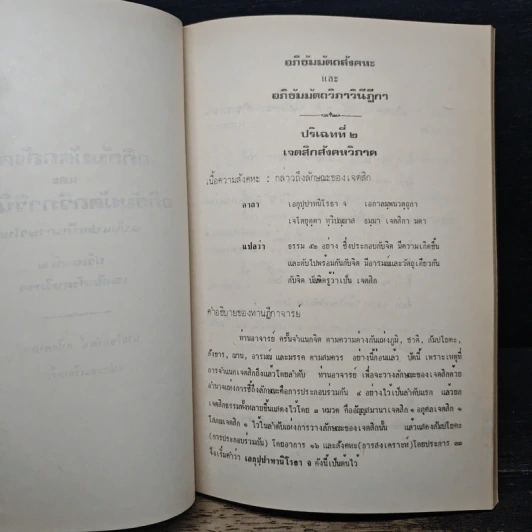 อภิธัมมัตถสังคหะ
และ
อภิธัมมัตถวิภาวินีฎีกา
ปริเฉทที่ ๒
เจตสิกสังคหวิภาค
เนื้อความสังคหะ : กล่าวถึงลักษณะของเจตสิก
คาถา เอกุปฺปาทนิโรธา จ เอกาลมฺพนวตฺถุกา
เจโตยุตฺตา ทฺวิปญฺญาส ธมฺมา เจตสิกา มตา
แปลว่า ธรรม ๕๒ อย่าง ซึ่งประกอบกับจิต มีความเกิดขึ้น
และดับไปพร้อมกันกับจิต มีอารมณ์และวัตถุเดียวกัน
กับจิต บัณฑิตรู้ว่าเป็น เจตสิก
คำอธิบายของท่านฎีกาจารย์
ท่านอาจารย์ ครั้นจำแนกจิต ตามความต่างกันแห่งภูมิ, ชาติ, สัมปโยคะ,
สังขาร, ฌาน, อารมณ์ และมรรค ตามสมควร อย่างนี้ก่อนแล้ว บัดนี้ เพราะเหตุที่
การจำแนกเจตสิกถึงแล้วโดยลำดับ ท่านอาจารย์ เพื่อจะวางลักษณะของเจตสิกด้วย
อำนาจแห่งการชี้ถึงลักษณะคือการประกอบร่วมกัน ๔ อย่างไว้เป็นลำดับแรก แล้วยก
เจตสิกธรรมทั้งหลายขึ้นแสดงไว้โดย ๓ หมวด คืออัญญสมานาเจตสิก ๑ อกุศลเจตสิก ๑
โสภณเจตสิก ๑ ไว้ในลำดับแห่งการวางลักษณะของเจตสิกนั้น แล้วแสดงสัมปโยคะ
(การประกอบร่วมกัน) โดยอาการ ๑๖ และสังคหะ(การสงเคราะห์)โดยประการ ๓๓
จึงเริ่มคำว่า เอกุปฺปาทนิโรธา จ ดังนี้เป็นต้นไว้